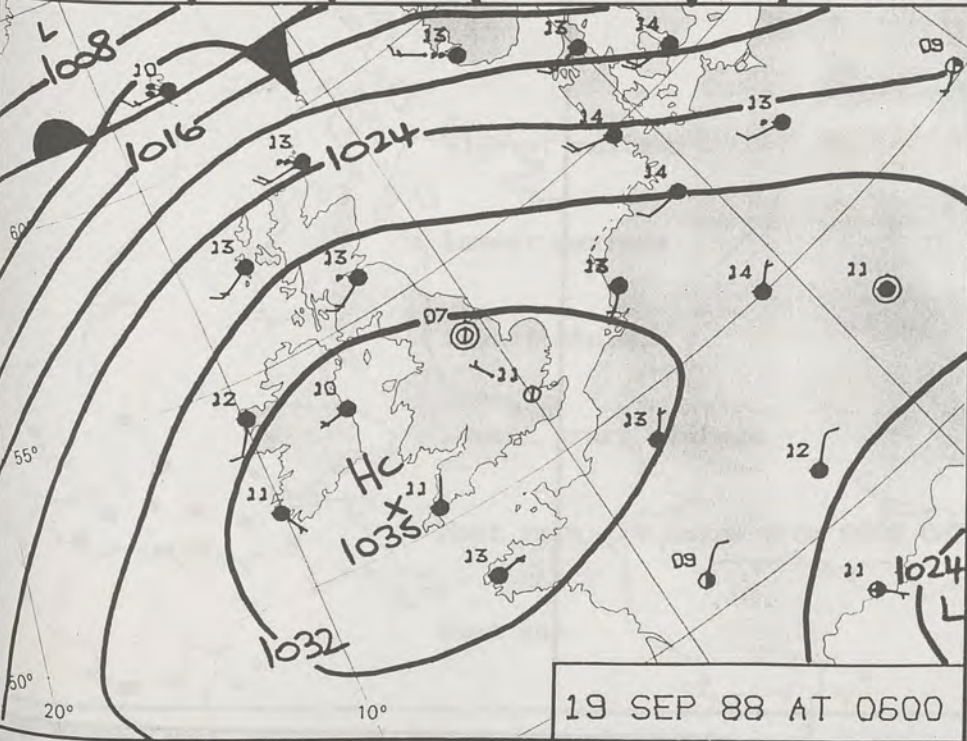 L
1008
10
13
13
14
09
1016
13
1024
14
13
14
60
13
13
13
14
11
07
11
12
10
13
12
55°
HC
11
11
X
1035
13
09
11
1024
L
1032
50°
20°
10°
19 SEP 88 AT 0600